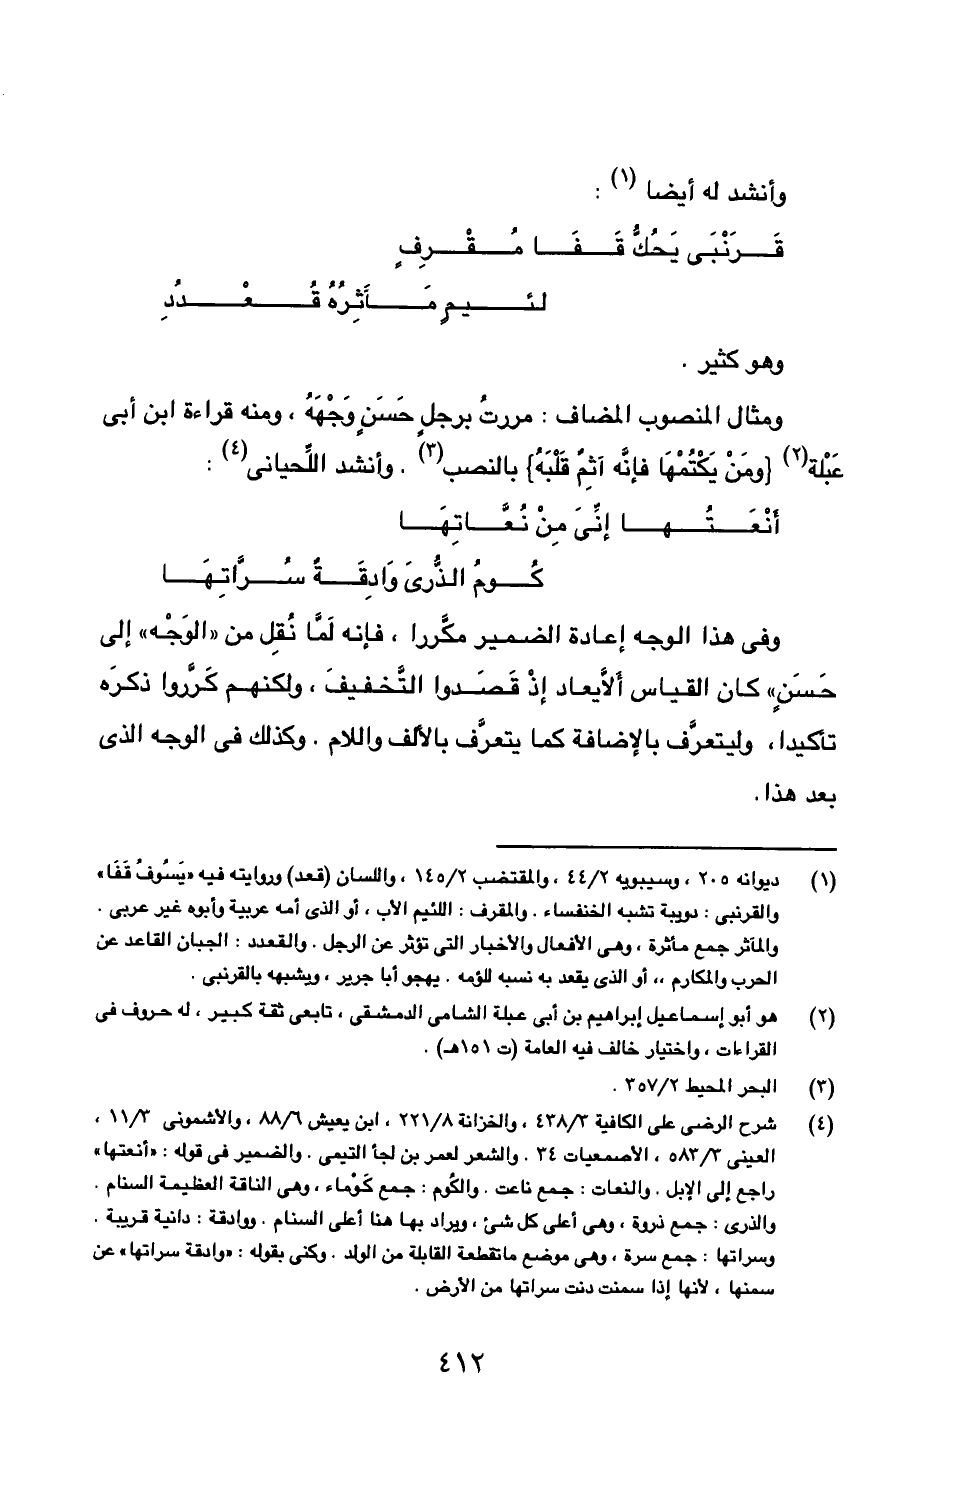 وأنشد له أيضا (١) :
قَـرَنْبَى يَحُكُّ قَـفَـا مُـقْـرِفٍ
لـئـيـمٍ مَـآثِرُهُ قُـعْـدُدِ
وهو كثير .
ومثال المنصوب المضاف : مررتُ برجلٍ حَسَنٍ وَجْهَهُ ، ومنه قراءة ابن أبى
عَبْلة(٢) {ومَنْ يَكْتُمْهَا فإنَّه آثمٌ قَلْبَهُ} بالنصب(٣) . وأنشد اللِّحيانى(٤) :
أَنْعَـتُـهـا إنِّىَ مِنْ نُعَّـاتِهَـا
كُـومُ الذُّرىَ وَادِقَـةً سُـرَّاتِهَـا
وفى هذا الوجه إعادة الضمير مكَّررا ، فإنه لَمَّا نُقِل من «الوَجْه» إلى
حَسَنٍ» كان القياس ألاَّيعاد إذْ قَصَدوا التَّخفيفَ ، ولكنهم كَرَّروا ذكرَه
تأكيدا، وليتعرَّف بالإضافة كما يتعرَّف بالألف واللام . وكذلك فى الوجه الذى
بعد هذا .
(١) ديوانه ٢٠٥ ، وسيبويه ٤٤/٢ ، والمقتضب ١٤٥/٢ ، واللسان (قعد) وروايته فيه «يَسُوفُ قَفَا»
والقرنبى : دويبة تشبه الخنفساء . والمقرف : اللئيم الأب ، أو الذى أمه عربية وأبوه غير عربى .
والمآثر جمع مأثرة ، وهى الأفعال والأخبار التى تؤثر عن الرجل . والقعدد : الجبان القاعد عن
الحرب والمكارم ،، أو الذى يقعد به نسبه للؤمه . يهجو أبا جرير ، ويشبهه بالقرنبى .
(٢) هو أبو إسماعيل إبراهيم بن أبى عبلة الشامى الدمشقى ، تابعى ثقة كبير ، له حروف فى
القراءات ، واختيار خالف فيه العامة (ت ١٥١هـ) .
(٣) البحر المحيط ٣٥٧/٢ .
(٤) شرح الرضى على الكافية ٤٣٨/٣ ، والخزانة ٢٢١/٨ ، ابن يعيش ٨٨/٦ ، والأشمونى ١١/٣ ،
العينى ٥٨٣/٣ ، الأصمعيات ٣٤ . والشعر لعمر بن لجأ التيمى . والضمير فى قوله : «أنعتها»
راجع إلى الإبل . والنعات : جمع ناعت . والكُوم : جمع كَوْماء ، وهى الناقة العظيمة السنام .
والذرى : جمع ذروة ، وهى أعلى كل شئ ، ويراد بها هنا أعلى السنام . ووادقة : دانية قريبة .
وسراتها : جمع سرة ، وهى موضع ماتقطعة القابلة من الولد . وكنى بقوله : «وادقة سراتها» عن
سمنها ، لأنها إذا سمنت دنت سراتها من الأرض .
٤١٢